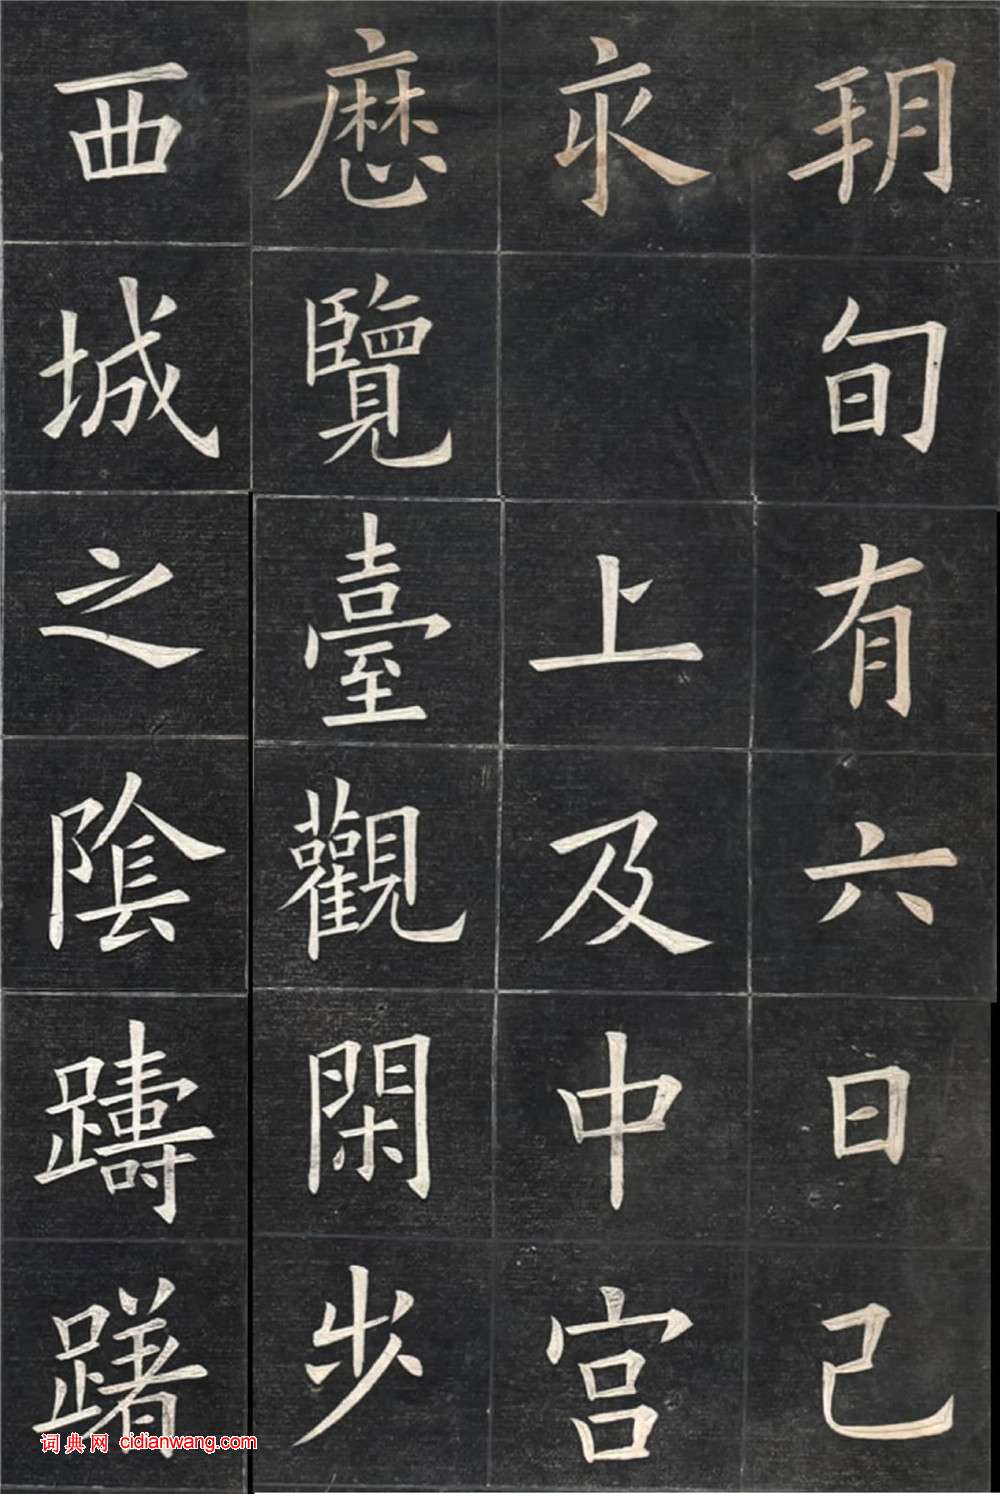 明旬有六日己
亥　上及中宮
歷覽臺觀閑步
西城之陰躊躇
词典网 cidianwang.com